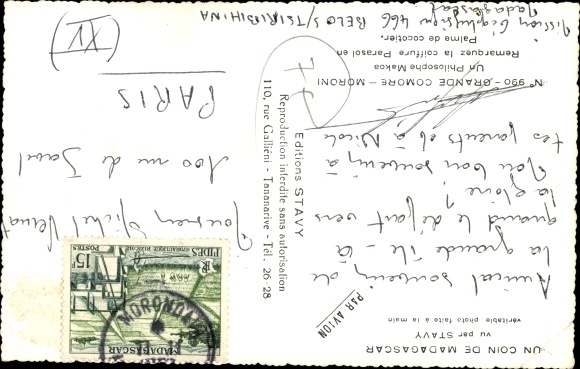 UN COIN DE MADAGASCAR
vu par STAVY
véritable photo faite à la main
PAR AVION
Amical souvenir de
la grande île - à
quand le départ vers
la gloire ?
Mon bon souvenir à
tes parents et à Nicole
N° 990 - GRANDE COMORE - MORONI
Un Philosophe Makoa
Remarquez la coiffure Parasol en
Palme de cocotier.
Mission Géophysique 466 BELO S/TSIRIBIHINA
Madagascar
Editions STAVY
Reproduction interdite sans autorisation
110, rue Galliéni - Tananarive - Tél. 26-28
77
FIDES
RF
15F
POSTES
MADAGASCAR
MORONDAVA
Monsieur Michel
100 rue de
PARIS
(XV)